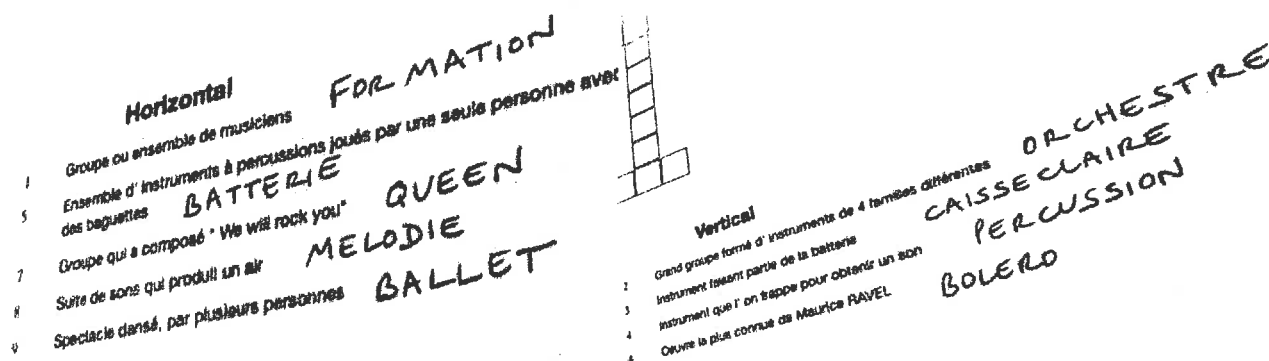 Horizontal
1 Groupe ou ensemble de musiciens FORMATION
5 Ensemble d' instruments à percussions joués par une seule personne avec
des baguettes BATTERIE
7 Groupe qui a composé " We will rock you" QUEEN
8 Suite de sons qui produit un air MELODIE
9 Spectacle dansé, par plusieurs personnes BALLET
Vertical
2 Grand groupe formé d' instruments de 4 familles différentes ORCHESTRE
3 Instrument faisant partie de la batterie CAISSECLAIRE
4 Instrument que l' on frappe pour obtenir un son PERCUSSION
6 Oeuvre la plus connue de Maurice RAVEL BOLERO